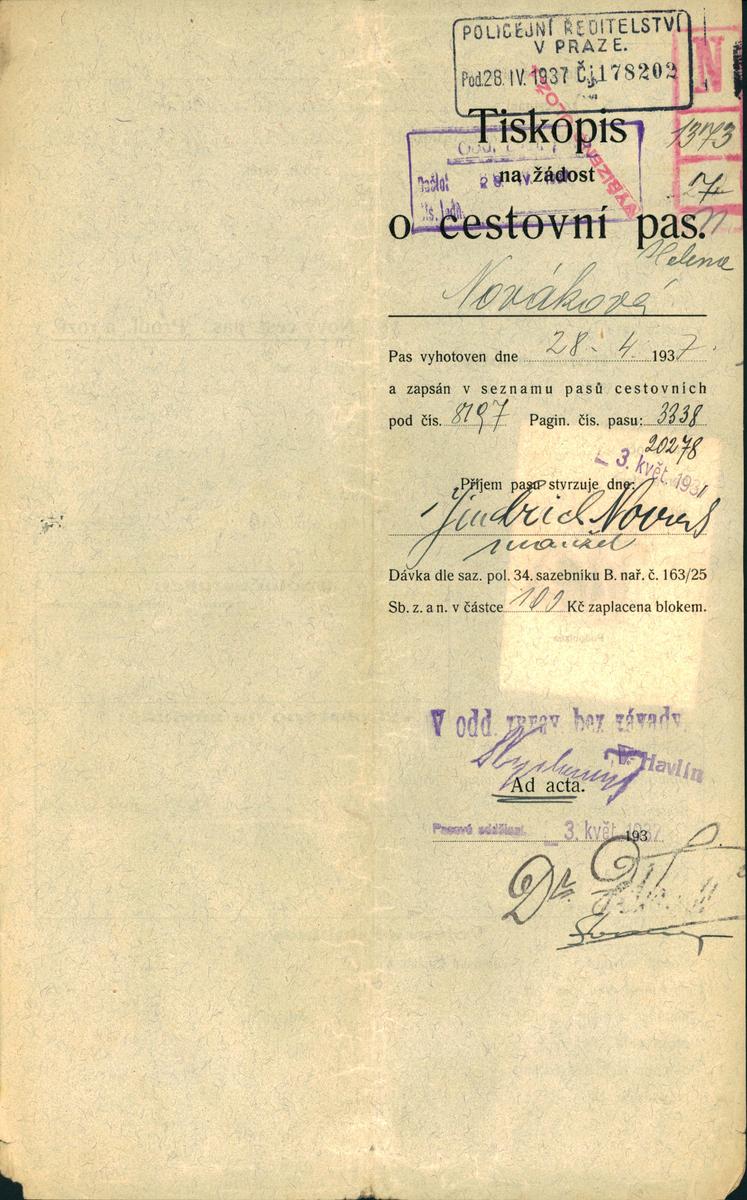 POLICEJNÍ ŘEDITELSTVÍ
V PRAZE.
Pod. 28. IV. 1937 Čj. 178202
N
1373
27
Tiskopis
na žádost
o cestovní pas.
Došlo: 28. IV.
Helena
Nováková
Pas vyhotoven dne 28. 4. 1937.
a zapsán v seznamu pasů cestovních
pod čís. 8197 Pagin. čís. pasu: 3338
20278
Příjem pasu stvrzuje dne:
- 3. květ. 1937
Jindřich Novák
manžel
Dávka dle saz. pol. 34. sazebníku B. nař. č. 163/25
Sb. z. a n. v částce 100 Kč zaplacena blokem.
V odd. zpráv bez závady.
Havlín
Ad acta.
Pasové oddělení. - 3. květ. 1937
193
Dr.